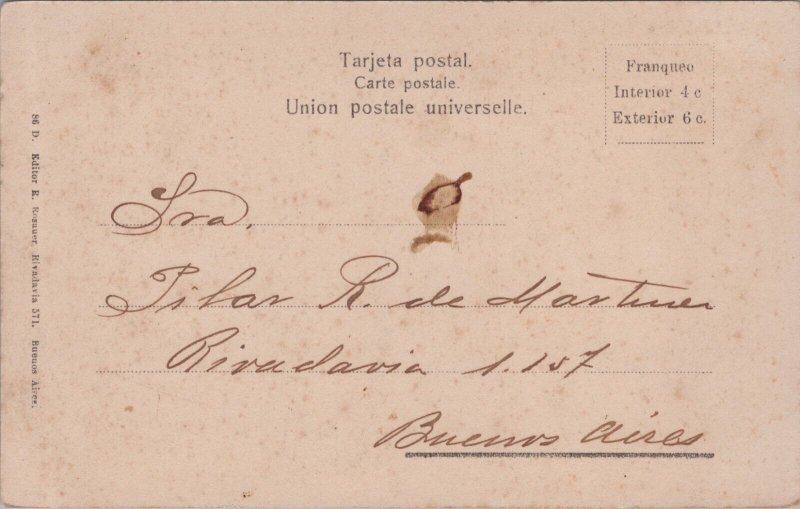 Tarjeta postal.
Carte postale.
Union postale universelle.
Franqueo
Interior 4 c
Exterior 6 c.
86 D. Editor R. Rosauer, Rivadavia 571. Buenos Aires.
Sra.
Pilar R. de Martinez
Rivadavia 1.157
Buenos Aires